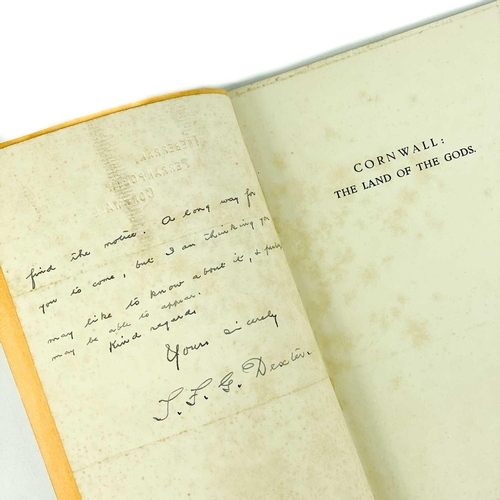 find the notice. A long way for
you to come, but I am thinking you
may like to know about it, &
may be able to appear.
Kind regards
Yours sincerely
T. F. G. Dexter.
CORNWALL:
THE LAND OF THE GODS.